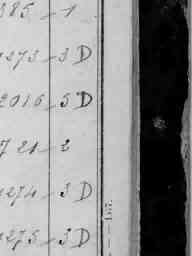 385 - 1
1273 - 3 D
2016 - 5 D
721 - 2
1274 - 3 D
1275 - 3 D